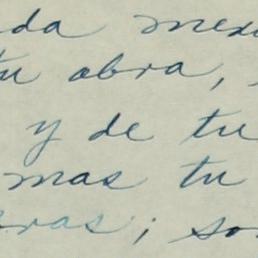 da
tu obra,
y de tu
mas tu
ras; so